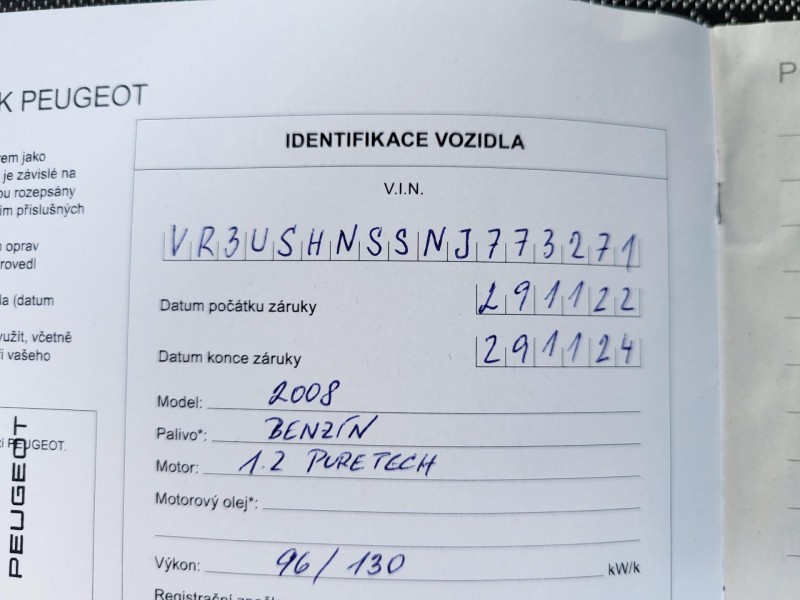 K PEUGEOT
rem jako
je závislé na
ou rozepsány
im příslušných
oprav
rovedl
la (datum
yužít, včetně
ři vašeho
PEUGEOT.
PEUGEOT
IDENTIFIKACE VOZIDLA
V.I.N.
VR3USHNSSNJ773271
Datum počátku záruky 291122
Datum konce záruky 291124
Model: 2008
Palivo*: BENZÍN
Motor: 1.2 PURETECH
Motorový olej*:
Výkon: 96/130 kW/k
P